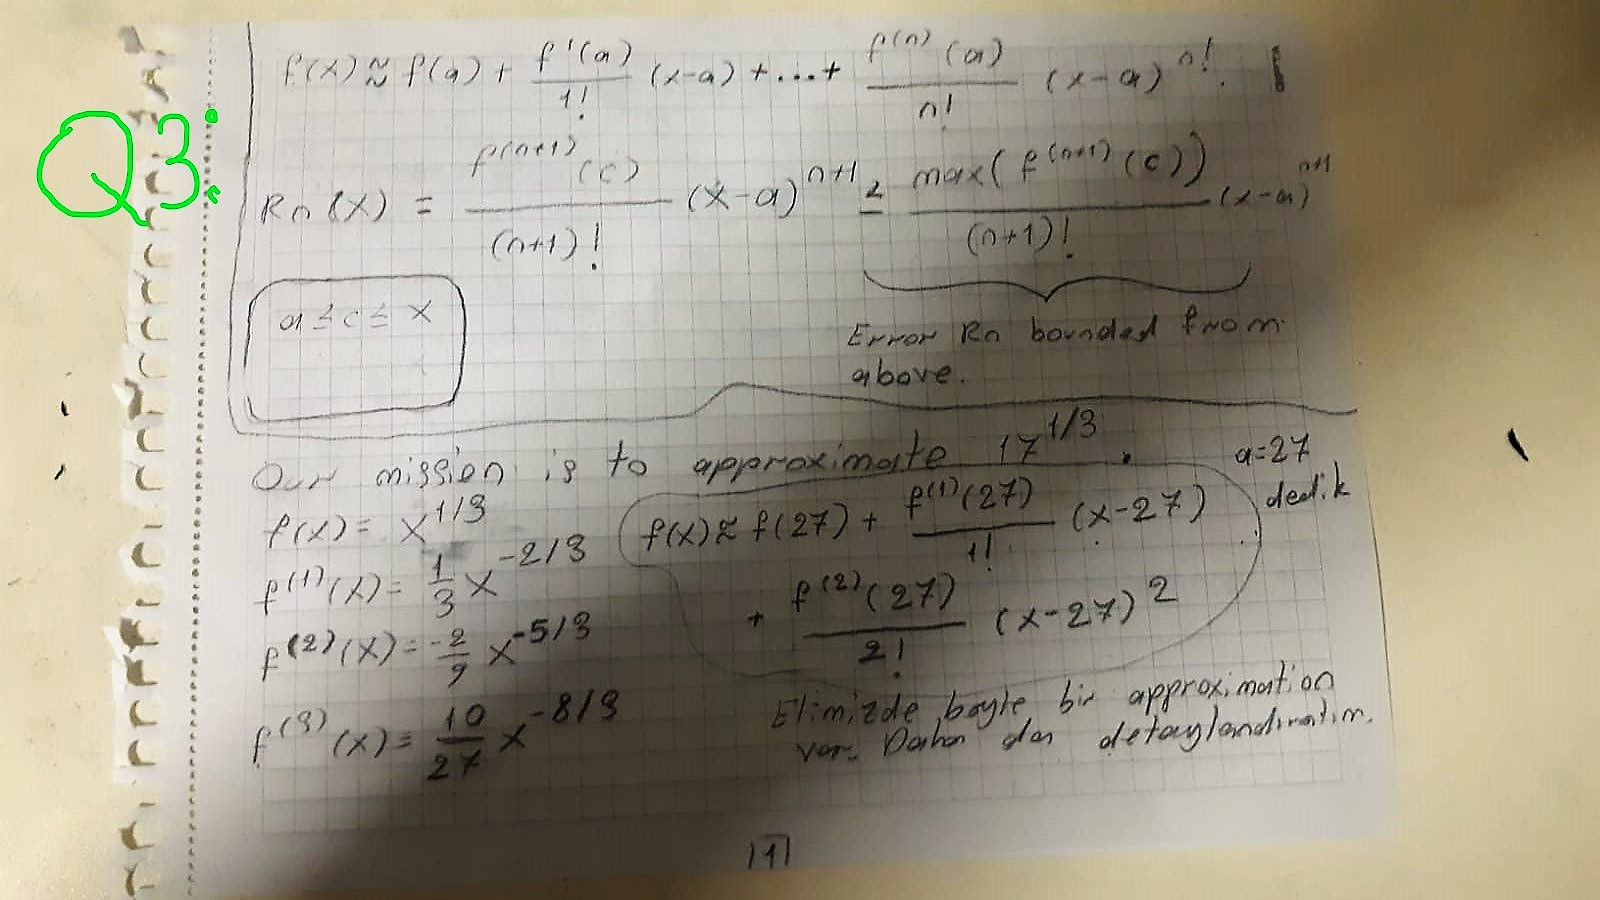 Q3:
f(x) ≈ f(a) + f'(a)/1! (x-a) + ... + f^(n)(a)/n! (x-a)^n!.
Rn(x) = f^(n+1)(c)/(n+1)! (x-a)^n+1 ≤ max(f^(n+1)(c))/(n+1)! (x-a)^n+1
a ≤ c ≤ x
Error Rn bounded from
above.
Our mission is to approximate 17^1/3.
a=27
dedik
f(x) = x^1/3
f^(1)(x) = 1/3 x^-2/3
f^(2)(x) = -2/9 x^-5/3
f^(3)(x) = 10/27 x^-8/3
f(x) ≈ f(27) + f^(1)(27)/1! (x-27)
+ f^(2)(27)/2! (x-27)^2
Elimizde boyle bir approximation
var. Daha da detaylandıralım.
|1|